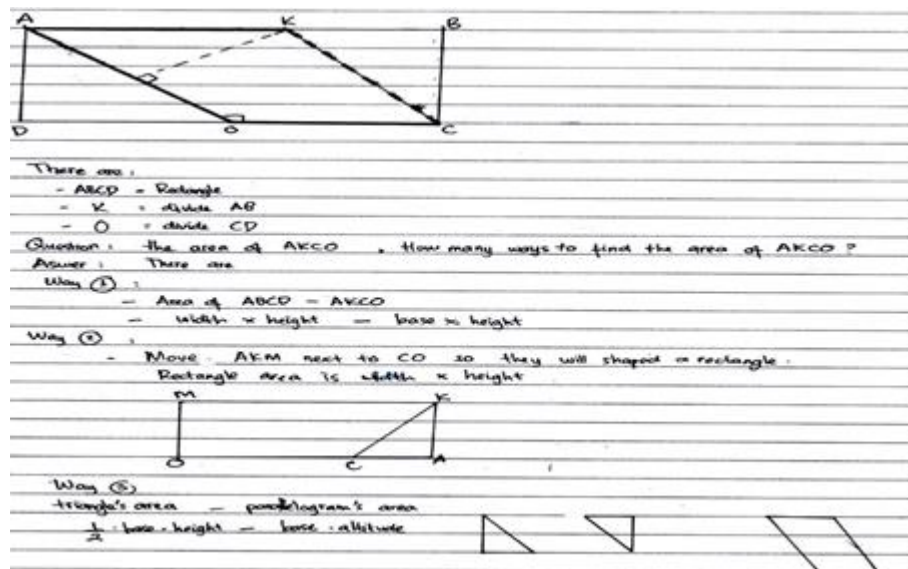 A K B
D O C
There are:
- ABCD = Rectangle
- K = divide AB
- O = divide CD
Question: the area of AKCO. How many ways to find the area of AKCO?
Aswer: There are
Way ①:
- Area of ABCD - AKCO
- width x height - base x height
Way ②:
- Move AKM next to CO so they will shaped a rectangle.
Rectangle area is width x height
M K
O C A
Way ③
triangle's area - parallelogram's area
1/2 · base · height - base · altitude